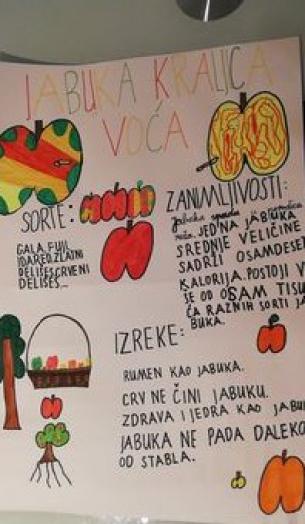 JABUKA KRALJICA
VOĆA
SORTE:
GALA, FUJI,
IDARED, ZLATNI
DELIŠES, CRVENI
DELIŠES...
ZANIMLJIVOSTI:
jabuka spada
JEDNA JABUKA
SREDNJE VELIČINE
SADRŽI OSAMDESE
KALORIJA. POSTOJI V
ŠE OD OSAM TISU
ĆA RAZNIH SORTI JA
BUKA.
IZREKE:
RUMEN KAO JABUKA.
CRV NE ČINI JABUKU.
ZDRAVA I JEDRA KAO JABU
JABUKA NE PADA DALEKO
OD STABLA.